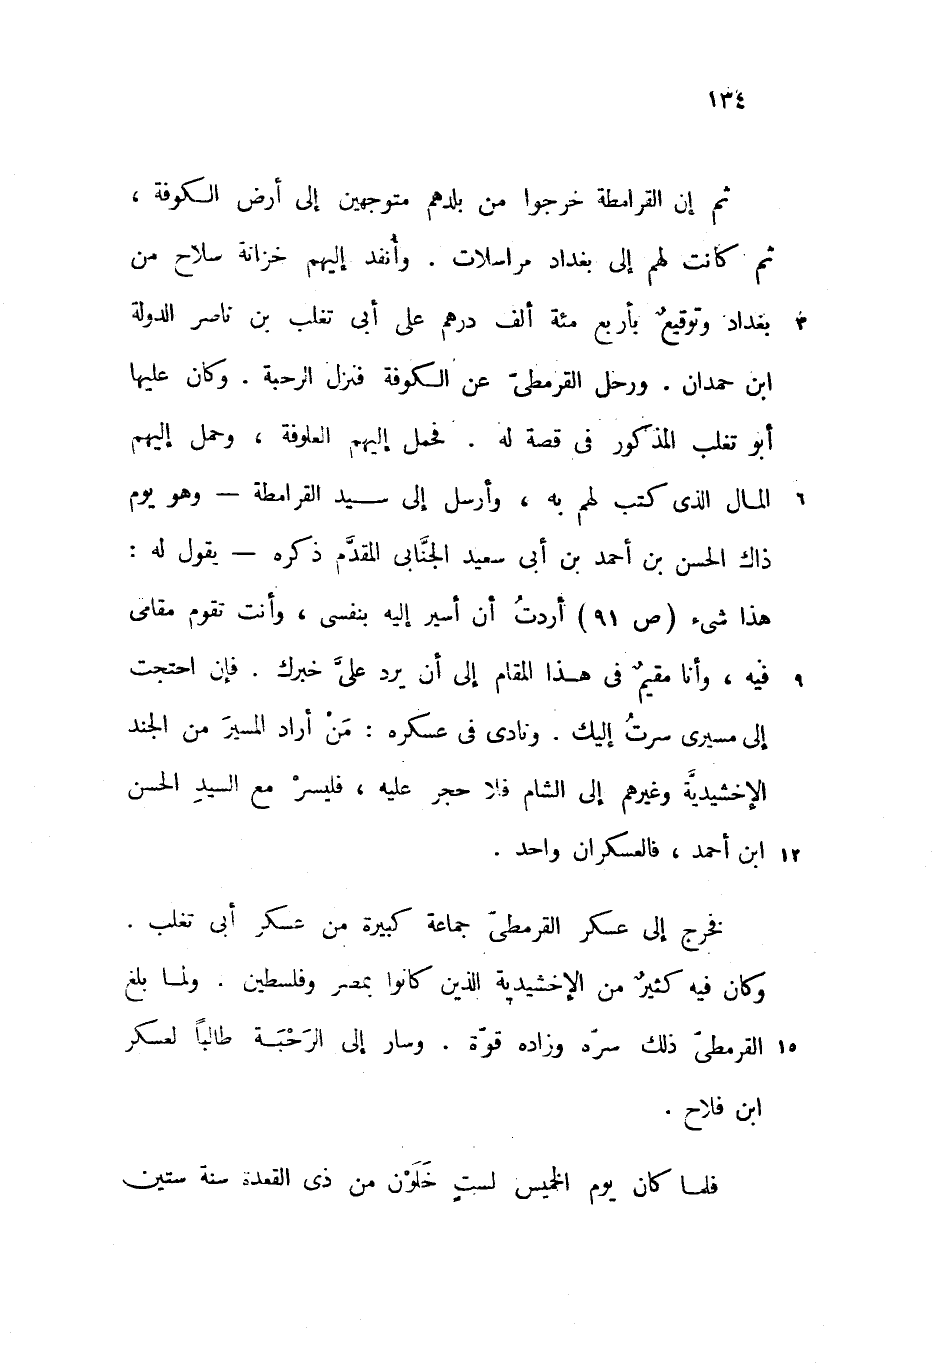 ١٣٤
ثم إن القرامطة خرجوا من بلدهم متوجهين إلى أرض الكوفة ،
ثم كانت لهم إلى بغداد مراسلات . وأُنفد إليهم خزانة سلاح من
٣ بغداد وتوقيعٌ بأربع مئة ألف درهم على أبى تغلب بن ناصر الدولة
ابن حمدان . ورحل القرمطىّ عن الكوفة فنزل الرحبة . وكان عليها
أبو تغلب المذكور فى قصة له . فحمل إليهم العلوفة ، وحمل إليهم
٦ المال الذى كتب لهم به ، وأرسل إلى سيد القرامطة — وهو يوم
ذاك الحسن بن أحمد بن أبى سعيد الجنَّابى المقدَّم ذكره — يقول له :
هذا شىء (ص ٩١) أردتُ أن أسير إليه بنفسى ، وأنت تقوم مقامى
٩ فيه ، وأنا مقيمٌ فى هذا المقام إلى أن يرد علىَّ خبرك . فإن احتجت
إلى مسيرى سرتُ إليك . ونادى فى عسكره : مَنْ أراد المسيرَ من الجند
الإخشيديَّة وغيرهم إلى الشام فلا حجر عليه ، فليسرْ مع السيدِ الحسن
١٢ ابن أحمد ، فالعسكران واحد .
فخرج إلى عسكر القرمطىّ جماعة كبيرة من عسكر أبى تغلب .
وكان فيه كثيرٌ من الإخشيدية الذين كانوا بمصر وفلسطين . ولما بلغ
١٥ القرمطىّ ذلك سرّه وزاده قوّة . وسار إلى الرَحْبَة طالباً لعسكر
ابن فلاح .
فلما كان يوم الخميس لستٍ خَلَوْن من ذى القعدة سنة ستين